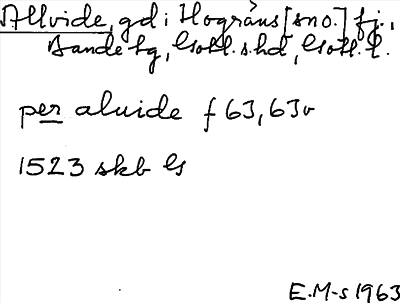 Allvide, gd i Hogräns [sno.] fj.,
Bande tg, Gotl. s. hd, Gotl. l.
per aluide f 63, 63v
1523 skb G
E.M-s 1963